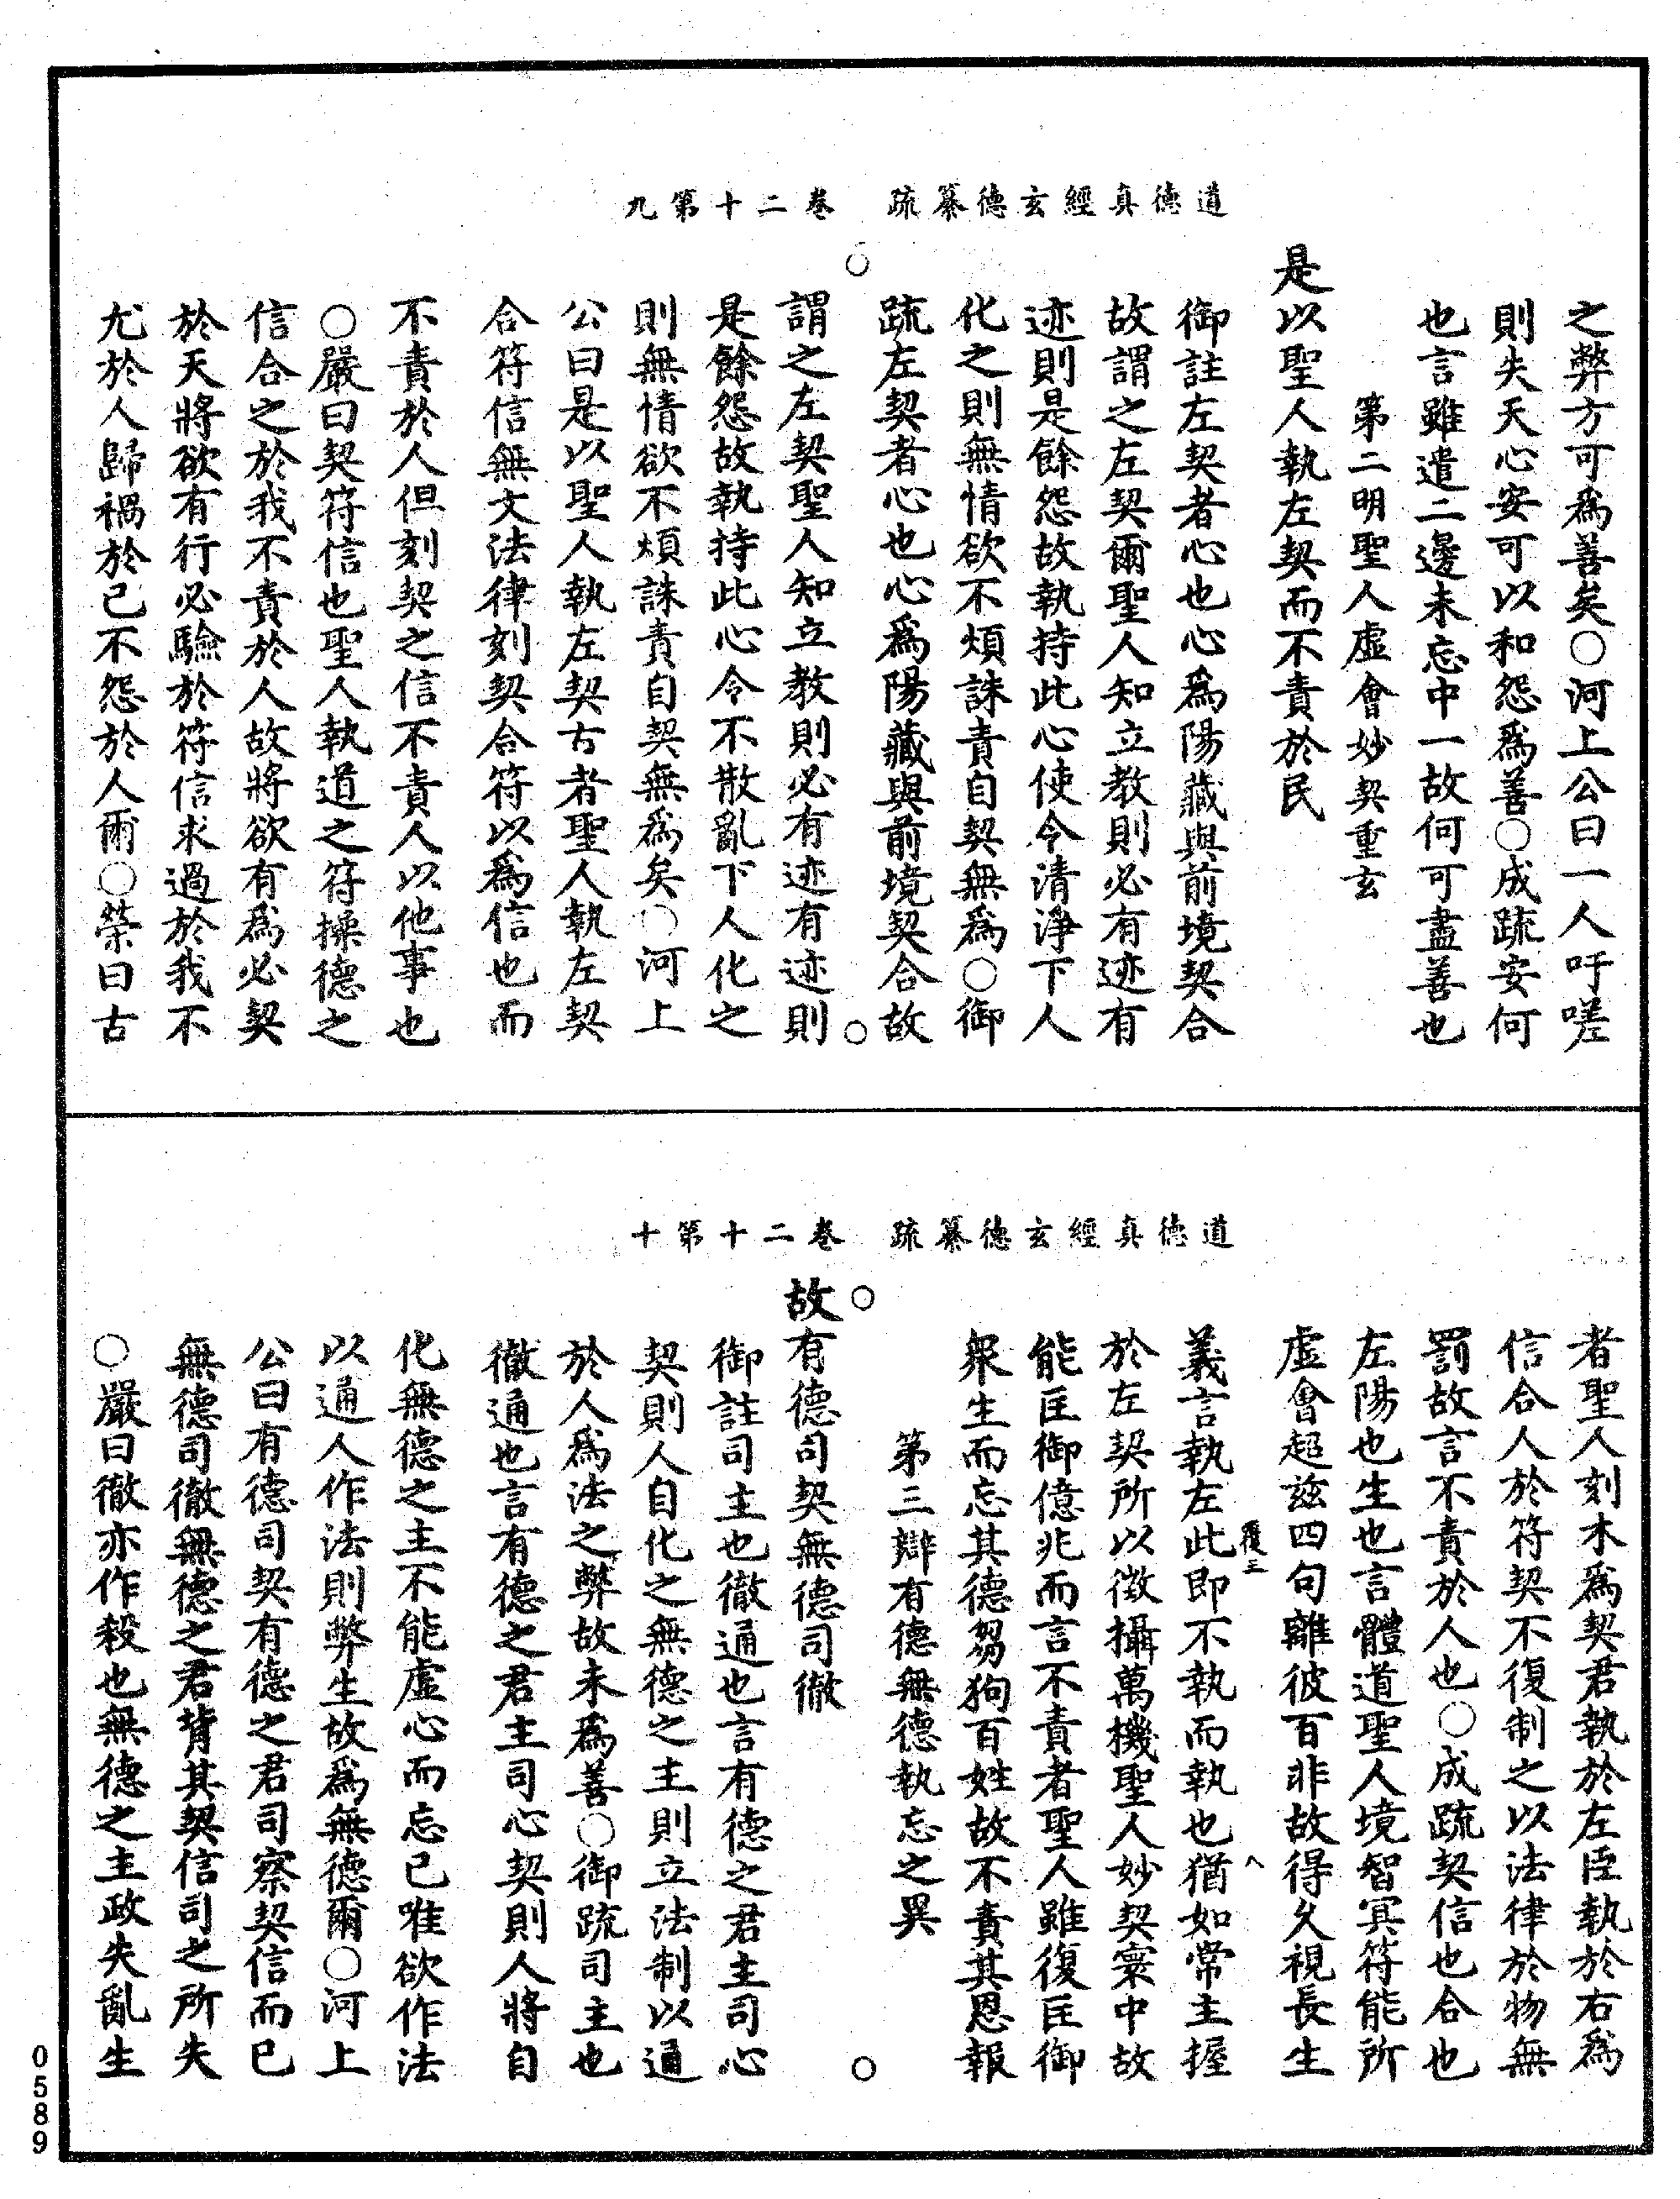 道德真經玄德纂疏　卷二十第九
之弊方可爲善矣○河上公曰一人吁嗟
則失天心安可以和怨爲善○成疏安何
也言雖遣二邊未忘中一故何可盡善也
第二明聖人虛會妙契重玄
是以聖人執左契而不責於民
御註左契者心也心爲陽藏與前境契合
故謂之左契爾聖人知立教則必有迹有
迹則是餘怨故執持此心使令清淨下人
化之則無情欲不煩誅責自契無爲○御
疏左契者心也心爲陽藏與前境契合故
謂之左契聖人知立教則必有迹有迹則
是餘怨故執持此心令不散亂下人化之
則無情欲不煩誅責自契無爲矣○河上
公曰是以聖人執左契古者聖人執左契
合符信無文法律刻契合符以爲信也而
不責於人但刻契之信不責人以他事也
○嚴曰契符信也聖人執道之符操德之
信合之於我不責於人故將欲有爲必契
於天將欲有行必驗於符信求過於我不
尤於人歸禍於己不怨於人爾○榮曰古
道德真經玄德纂疏　卷二十第十
者聖人刻木爲契君執於左臣執於右爲
信合人於符契不復制之以法律於物無
罰故言不責於人也○成疏契信也合也
左陽也生也言體道聖人境智冥符能所
虛會超兹四句離彼百非故得久視長生
義言執左此即不執而執也猶如常主握
於左契所以徵攝萬機聖人妙契寰中故
能匡御億兆而言不責者聖人雖復匡御
衆生而忘其德芻狗百姓故不責其恩報
第三辯有德無德執忘之異
故有德司契無德司徹
御註司主也徹通也言有德之君主司心
契則人自化之無德之主則立法制以通
於人爲法之弊故未爲善○御疏司主也
徹通也言有德之君主司心契則人將自
化無德之主不能虛心而忘己唯欲作法
以通人作法則弊生故爲無德爾○河上
公曰有德司契有德之君司察契信而已
無德司徹無德之君背其契信司之所失
○嚴曰徹亦作殺也無德之主政失亂生
覆三
八
0589